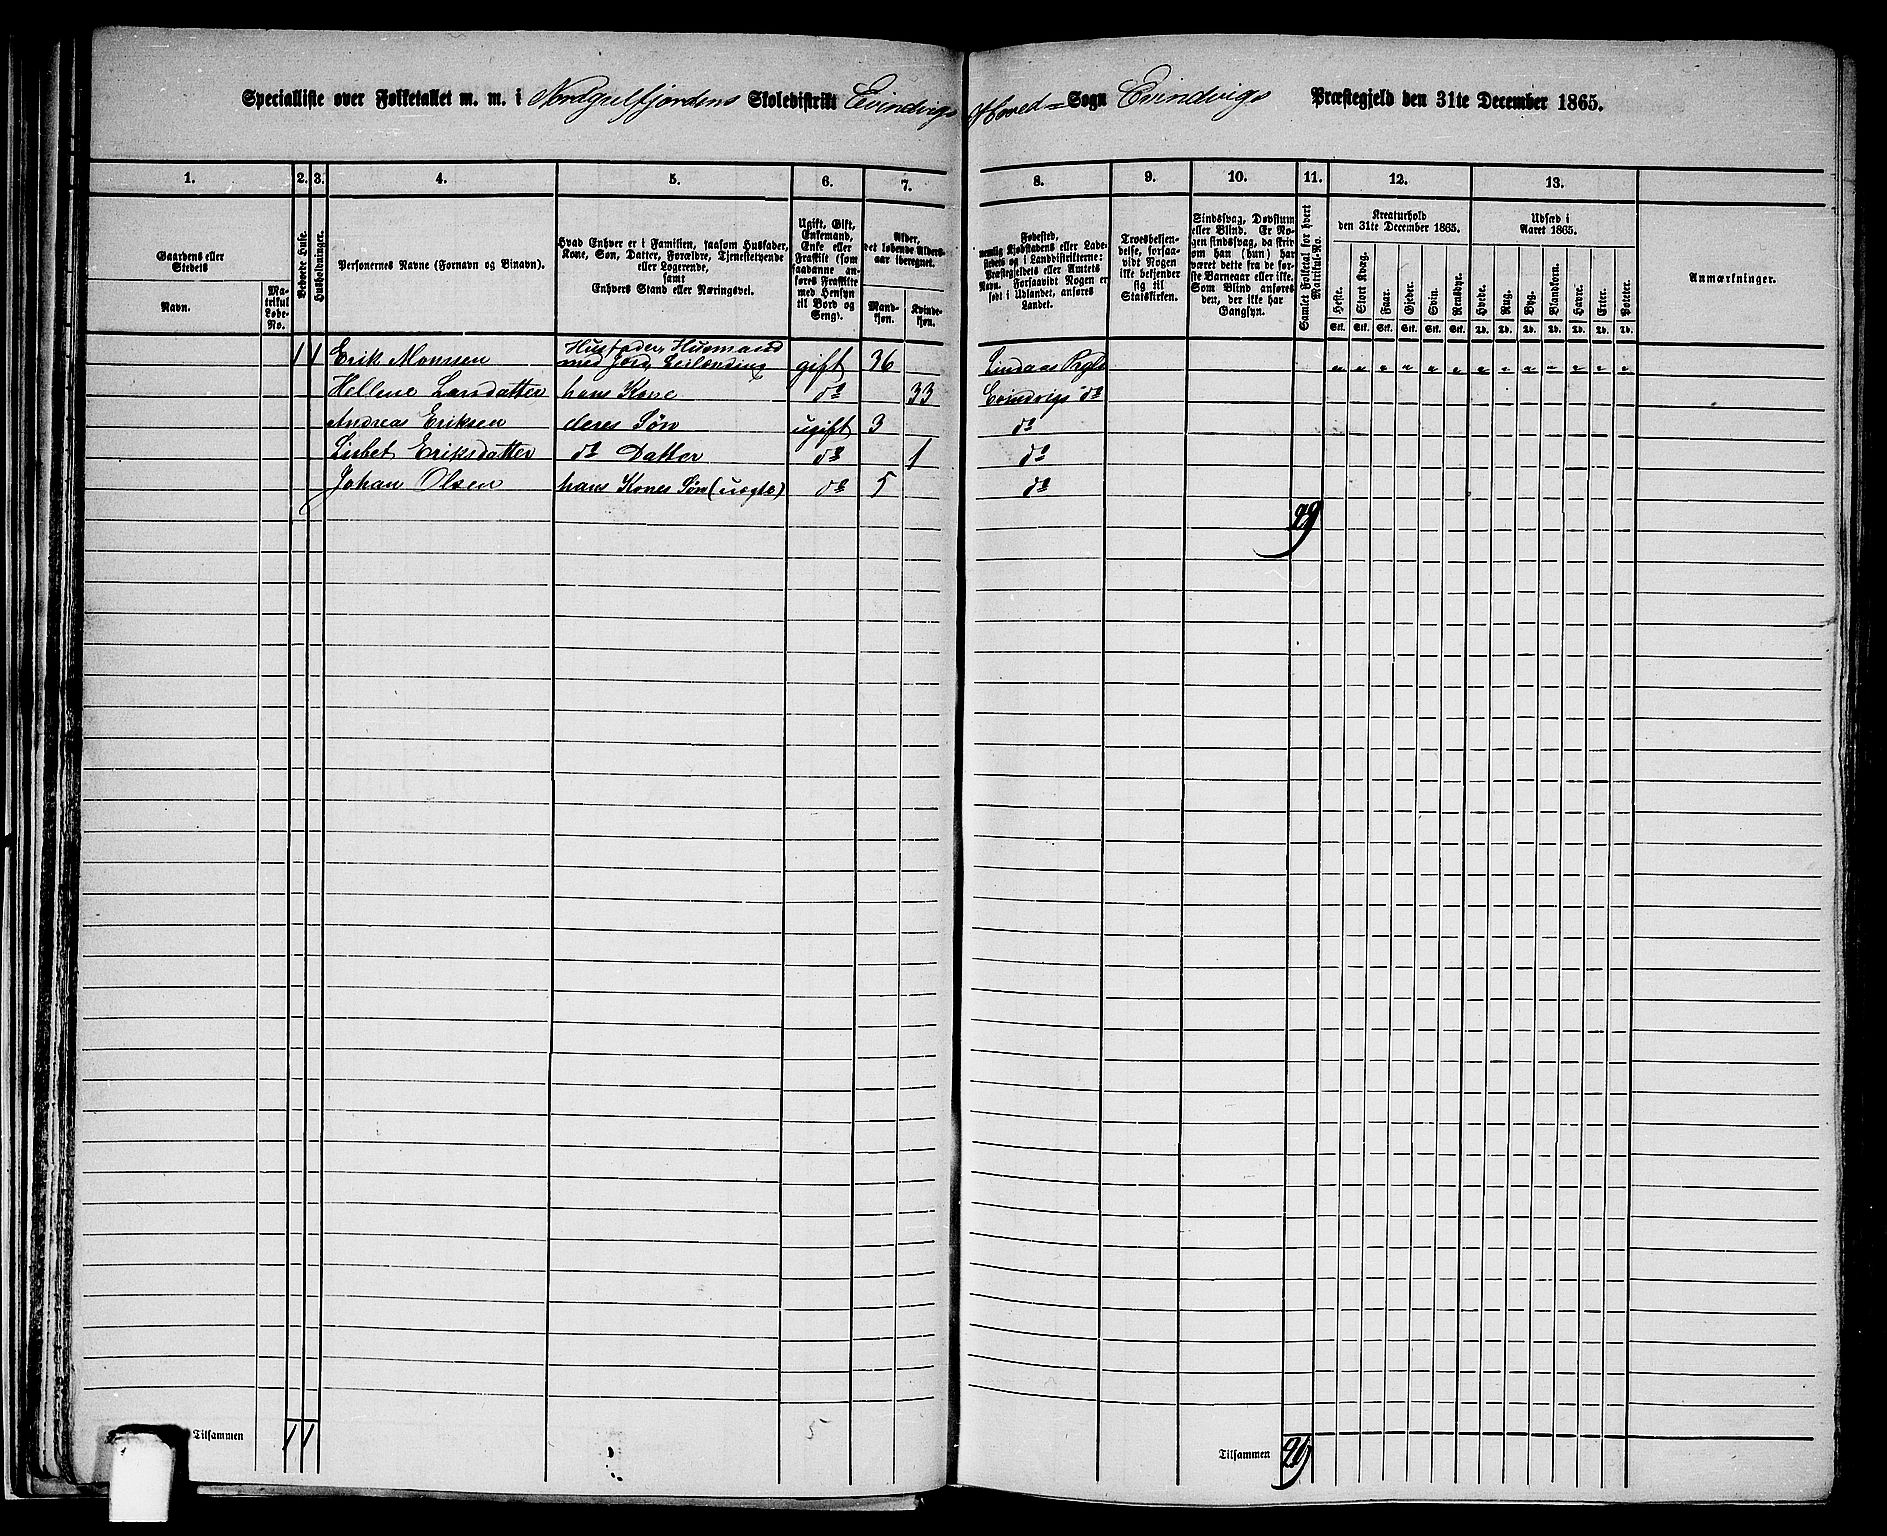 Specialliste over Folketallet m. m. i Nordgulfjordens Skoledistrikt Evindvigs Hoved- Sogn Evindvigs Præstegjeld den 31te December 1865.
1. 2. 3. 4. 5. 6. 7. 8. 9. 10. 11. 12. 13.
Gaardens eller Stedets
Navn.
Matrikul Løbe-No.
Bebode Huse.
Husholdninger.
Personernes Navne (Fornavn og Binavn).
Hvad Enhver er i Familien, saasom Husfader,
Kone, Søn, Datter, Forældre, Tjenestetyende
eller Logerende,
samt
Enhvers Stand eller Næringsvei.
Ugift, Gift,
Enkemand,
Enke eller
Fraskilt (som
saadanne an-
føres Fraskilte
med Hensyn
til Bord og
Seng).
Alder,
det løbende Alders-
aar iberegnet.
Mand-
kjøn.
Kvinde-
kjøn.
Fødested,
nemlig Kjøbstadens eller Lade-
stedets og i Landdistrikterne:
Præstegjeldets eller Amtets
Navn. Forsaavidt Nogen er
født i Udlandet, anføres
Landet.
Troesbekjen-
delse, forsaa-
vidt Nogen
ikke bekjender
sig til
Statskirken.
Sindssvag, Døvstum
eller Blind. Er No-
gen sindssvag, da skriv
om han (hun) har
været dette fra de før-
ste Barneaar eller ikke.
Som Blind anføres
den, der ikke har
Gangsyn.
Samlet Folketal for hvert
Matrikul-No.
Kreaturhold
den 31te December 1865.
Heste. Stort Kvæg. Faar. Gjeder. Svin. Rensdyr.
Stk. Stk. Stk. Stk. Stk. Stk.
Udsæd i
Aaret 1865.
Hvede. Rug. Byg. Blandkorn. Havre. Erter. Poteter.
Td. Td. Td. Td. Td. Td. Td.
Anmærkninger.
1 1 Erik Monssen Husfader, Husmand med Jord, Leilænding gift 36 Lindaas Prgld " " " " " " " " " " " " "
Hellene Larsdatter hans Kone do 33 Evindvigs do
Andreas Eriksen deres Søn ugift 3 do
Lisbet Eriksdatter do Datter do 1 do
Johan Olsen hans Kones Søn (uægte) do 5 do
29
Tilsammen 1 1 5 Tilsammen 29